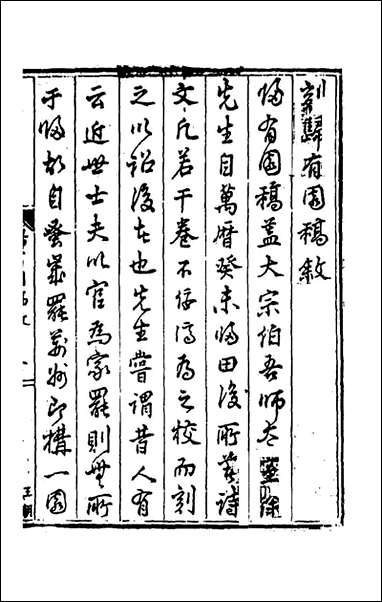 刻歸有園稿敘
歸有園稿蓋大宗伯吾師太室徐
先生自萬曆癸未歸田後所著詩
文凡若干卷不佞濤為之校而刻
之以詔後者也先生嘗謂昔人有
云近世士夫以官為家罷則無所
于歸故自蚤歲罷郡即搆一園